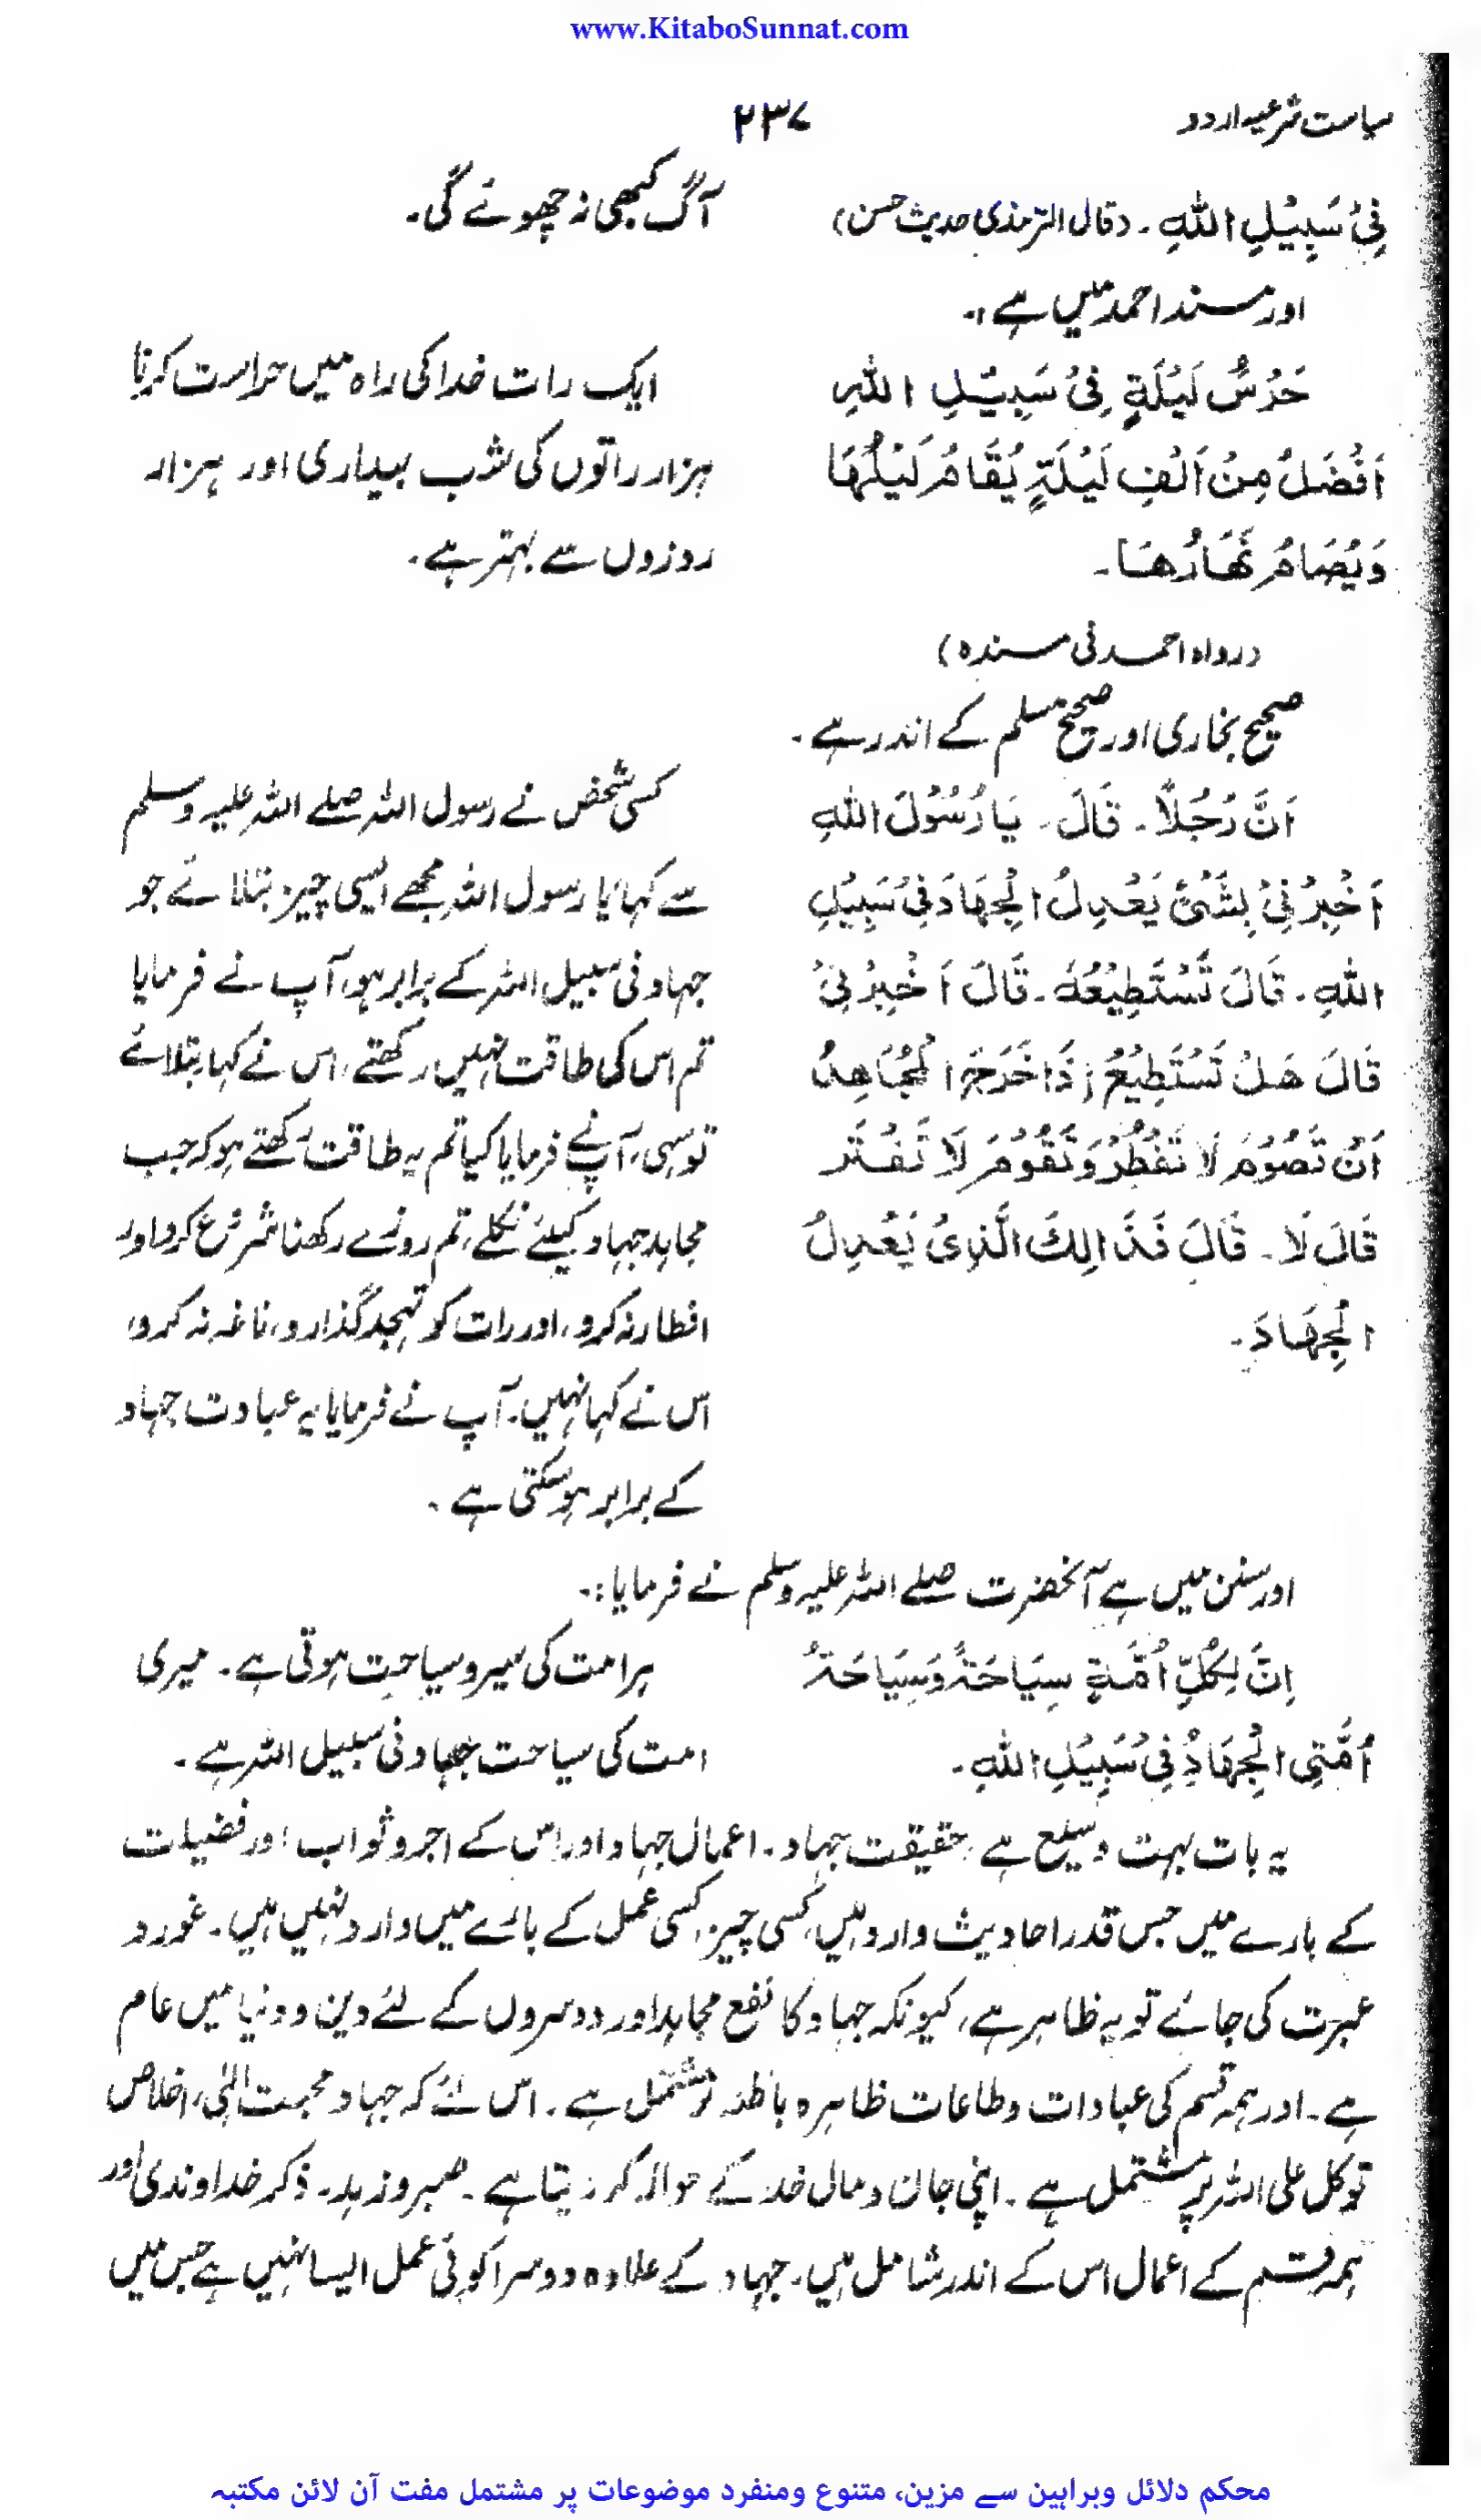 www.KitaboSunnat.com
سیاست شرعیہ اردو
۲۳۷
فِیْ سَبِیْلِ اللّٰہِ ۔ (قال الترمذی حدیث حسن)
آگ کبھی نہ چھوئے گی۔
اور مسند احمد میں ہے :۔
حَرْسُ لَیْلَةٍ فِیْ سَبِیْلِ اللّٰہِ
اَفْضَلُ مِنْ اَلْفِ لَیْلَةٍ یُقَامُ لَیْلُہَا
وَیُصَامُ نَھَارُھَا۔
ایک رات خدا کی راہ میں حراست کرنا
ہزار راتوں کی شب بیداری اور ہزار
روزوں سے بہتر ہے۔
(رواہ احمد فی مسندہ)
صحیح بخاری اور صحیح مسلم کے اندر ہے۔
اَنَّ رَجُلًا۔ قَالَ۔ یَا رَسُوْلَ اللّٰہِ
اَخْبِرْنِیْ بِشَیْئٍ یَعْدِلُ الْجِهَادَ فِیْ سَبِیْلِ
اللّٰہِ۔ قَالَ تَسْتَطِیْعُهٗ۔ قَالَ اَخْبِرْنِیْ
قَالَ هَلْ تَسْتَطِیْعُ اِذَا خَرَجَ الْمُجَاهِدُ
اَنْ تَصُوْمَ لَا تَفْطُرْ وَتَقُوْمَ لَا تَفْتَر
قَالَ لَا۔ قَالَ فَذَالِكَ الَّذِیْ یَعْدِلُ
الْجِهَادَ۔
کسی شخص نے رسول اللہ صلے اللہ علیہ وسلم
سے کہا یا رسول اللہ مجھے ایسی چیز بتلائے جو
جہاد فی سبیل اللہ کے برابر ہو، آپ نے فرمایا
تم اس کی طاقت نہیں رکھتے، اس نے کہا بتلائے
تو سہی، آپ نے فرمایا کیا تم یہ طاقت رکھتے ہو کہ جب
مجاہد جہاد کیلئے نکلے، تم روزے رکھنا شروع کرو اور
افطار نہ کرو، اور رات کو تہجد گذارو، ناغہ نہ کرو،
اس نے کہا نہیں۔ آپ نے فرمایا یہ عبادت جہاد
کے برابر ہو سکتی ہے۔
اور سنن میں ہے آنحضرت صلے اللہ علیہ وسلم نے فرمایا :۔
اِنَّ لِکُلِّ اُمَّةٍ سِیَاحَةً وَسِیَاحَةُ
اُمَّتِی الْجِهَادُ فِیْ سَبِیْلِ اللّٰہِ۔
ہر امت کی سیر و سیاحت ہوتی ہے۔ میری
امت کی سیاحت جہاد فی سبیل اللہ ہے۔
یہ بات بہت وسیع ہے، حقیقت جہاد۔ اعمال جہاد اور اس کے اجر و ثواب اور فضیلت
کے بارے میں جس قدر احادیث وارد ہیں، کسی چیز، کسی عمل کے بارے میں وارد نہیں ہیں۔ غور و
عبرت کی جائے تو یہ ظاہر ہے، کیونکہ جہاد کا نفع مجاہد اور دوسروں کے لئے دین و دنیا میں عام
ہے۔ اور ہمہ قسم کی عبادات و طاعات ظاہرہ باطنہ پر مشتمل ہے۔ اس لئے کہ جہاد محبت الٰہی، اخلاص
توکل علی اللہ پر مشتمل ہے۔ اپنی جان و مال خدا کے حوالہ کر دیتا ہے۔ صبر و زہد۔ ذکر خداوندی اور
ہمہ قسم کے اعمال اس کے اندر شامل ہیں۔ جہاد کے علاوہ دوسرا کوئی عمل ایسا نہیں ہے جس میں
محکم دلائل وبراہین سے مزین، متنوع ومنفرد موضوعات پر مشتمل مفت آن لائن مکتبہ